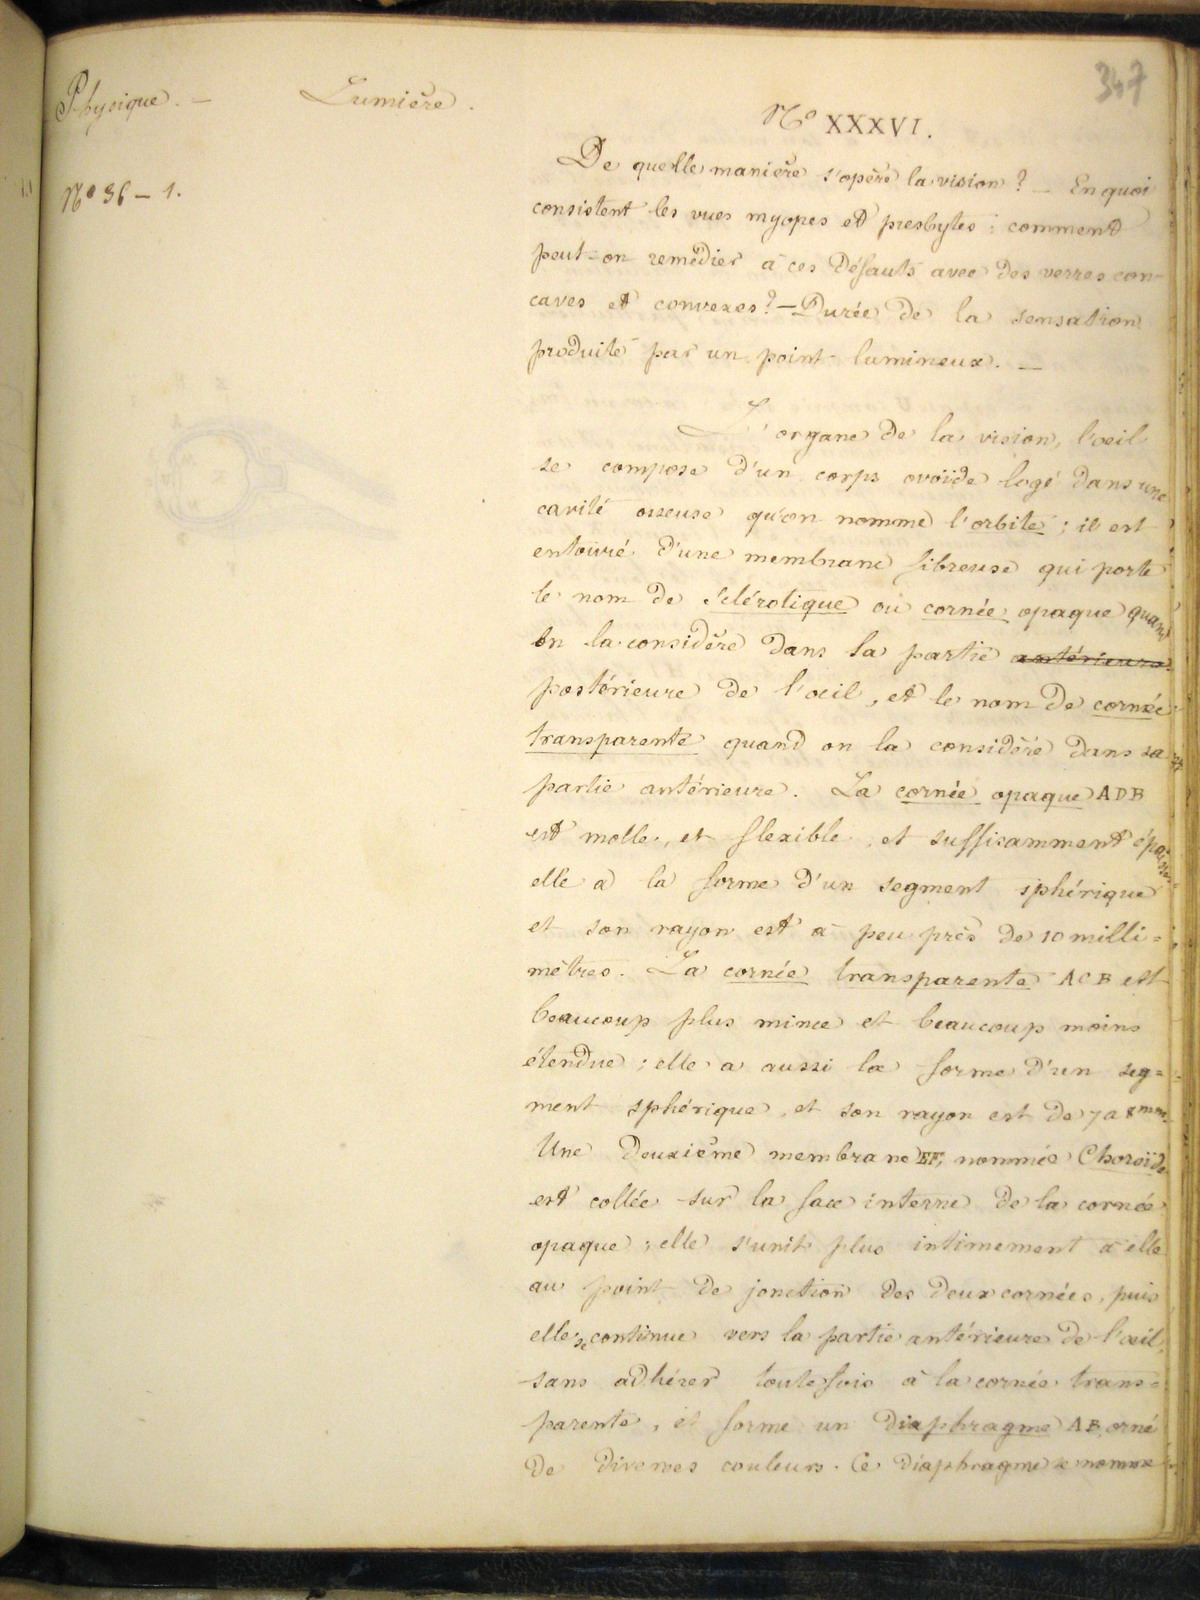 347
Physique. — Lumière.
No 36 – 1.
No XXXVI.
De quelle manière s'opère la vision ? — En quoi
consistent les vues myopes et presbytes ; comment
peut-on remédier à ces défauts avec des verres con-
caves et convexes ? — Durée de la sensation
produite par un point lumineux. —
L'organe de la vision, l'œil
se compose d'un corps ovoïde logé dans une
cavité osseuse qu'on nomme l'orbite ; il est
entouré d'une membrane fibreuse qui porte
le nom de Sclérotique ou cornée opaque quand
on la considère dans la partie antérieure
postérieure de l'œil, et le nom de cornée
transparente quand on la considère dans sa
partie antérieure. La cornée opaque ADB
est molle, et flexible, et suffisamment épaisse
elle a la forme d'un segment sphérique
et son rayon est à peu près de 10 milli=
mètres. La cornée transparente ACB est
beaucoup plus mince et beaucoup moins
étendue ; elle a aussi la forme d'un seg=
ment sphérique, et son rayon est de 7 a 8mm.
Une deuxième membrane EF, nommée Choroïde
est collée sur la face interne de la cornée
opaque ; elle s'unit plus intimement à elle
au point de jonction des deux cornées, puis
elle se continue vers la partie antérieure de l'œil,
sans adhérer toutefois à la cornée trans=
parente, et forme un diaphragme AB, orné
de diverses couleurs. Ce diaphragme se nomme